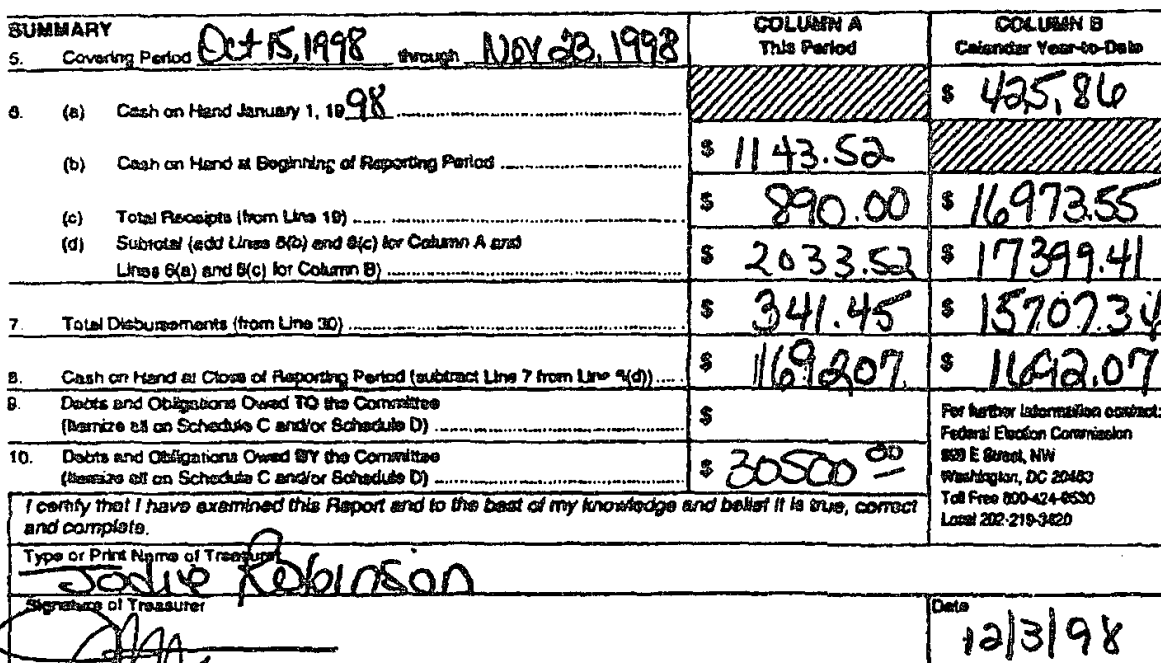 SUMMARY
COLUMN A
This Period
COLUMN B
Calendar Year-to-Date
5. Covering Period Oct 15, 1998 through Nov 23, 1998
6. (a) Cash on Hand January 1, 1998 $ 425,86
(b) Cash on Hand at Beginning of Reporting Period $ 1143.52
(c) Total Receipts (from Line 19) $ 890.00 $ 16973.55
(d) Subtotal (add Lines 6(b) and 6(c) for Column A and
Lines 6(a) and 6(c) for Column B) $ 2033.52 $ 17399.41
7. Total Disbursements (from Line 30) $ 341.45 $ 15707.34
8. Cash on Hand at Close of Reporting Period (subtract Line 7 from Line 6(d)) $ 169207 $ 1692.07
9. Debts and Obligations Owed TO the Committee
(Itemize all on Schedule C and/or Schedule D) $
10. Debts and Obligations Owed BY the Committee
(Itemize all on Schedule C and/or Schedule D) $ 30500 00
For further information contact:
Federal Election Commission
999 E Street, NW
Washington, DC 20463
Toll Free 800-424-9530
Local 202-219-3420
I certify that I have examined this Report and to the best of my knowledge and belief it is true, correct
and complete.
Type or Print Name of Treasurer
Jodie Robinson
Signature of Treasurer
Date
12/3/98